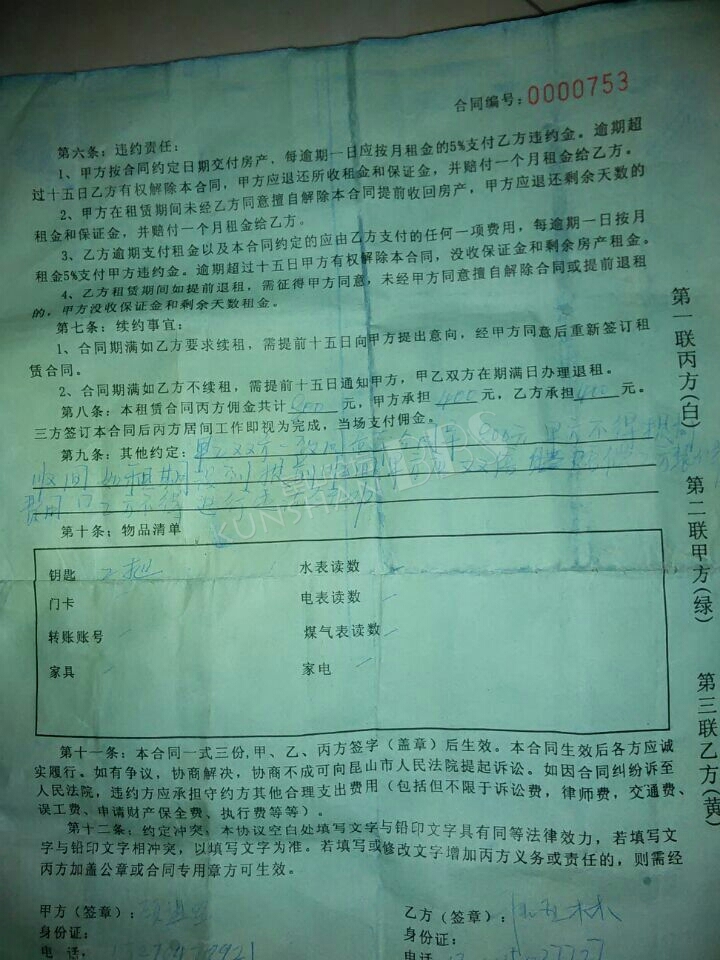 合同编号：0000753
第六条：违约责任：
1、甲方按合同约定日期交付房产，每逾期一日应按月租金的5%支付乙方违约金。逾期超
过十五日乙方有权解除本合同，甲方应退还所收租金和保证金，并赔付一个月租金给乙方。
2、甲方在租赁期间未经乙方同意擅自解除本合同提前收回房产，甲方应退还剩余天数的
租金和保证金，并赔付一个月租金给乙方。
3、乙方逾期支付租金以及本合同约定的应由乙方支付的任何一项费用，每逾期一日按月
租金5%支付甲方违约金。逾期超过十五日甲方有权解除本合同，没收保证金和剩余房产租金。
4、乙方租赁期间如提前退租，需征得甲方同意，未经甲方同意擅自解除合同或提前退租
的，甲方没收保证金和剩余天数租金。
第七条：续约事宜：
1、合同期满如乙方要求续租，需提前十五日向甲方提出意向，经甲方同意后重新签订租
赁合同。
2、合同期满如乙方不续租，需提前十五日通知甲方，甲乙双方在期满日办理退租。
第八条：本租赁合同丙方佣金共计800元，甲方承担400元，乙方承担400元。
三方签订本合同后丙方居间工作即视为完成，当场支付佣金。
第九条：其他约定：甲乙双方一致同意
第十条：物品清单
钥匙 2把 水表读数
门卡 电表读数
转账账号 煤气表读数
家具 家电
第十一条：本合同一式三份,甲、乙、丙方签字（盖章）后生效。本合同生效后各方应诚
实履行。如有争议，协商解决，协商不成可向昆山市人民法院提起诉讼。如因合同纠纷诉至
人民法院，违约方应承担守约方其他合理支出费用（包括但不限于诉讼费，律师费，交通费、
误工费、申请财产保全费、执行费等等）。
第十二条：约定冲突：本协议空白处填写文字与铅印文字具有同等法律效力，若填写文
字与铅印文字相冲突，以填写文字为准。若填写或修改文字增加丙方义务或责任的，则需经
丙方加盖公章或合同专用章方可生效。
甲方（签章）： 乙方（签章）：
身份证： 身份证：
电 话： 电 话：
第一联丙方(白)
第二联甲方(绿)
第三联乙方(黄)
KUNSHAN BBS